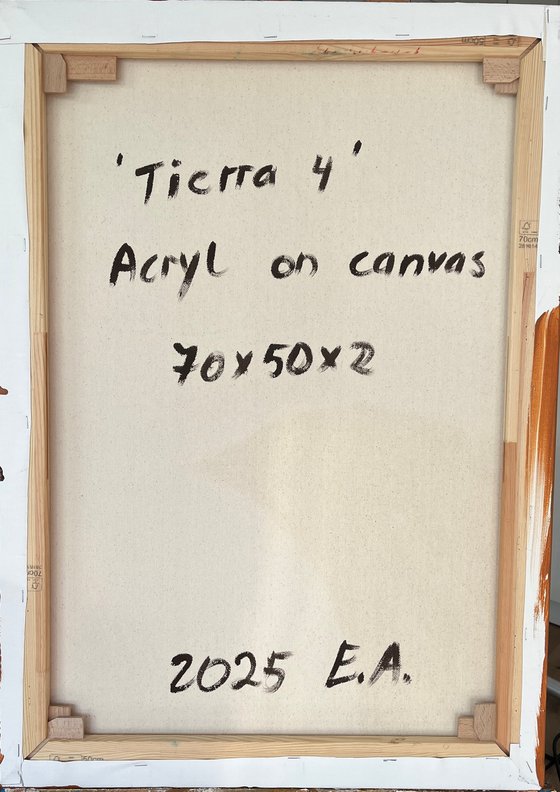 'Tierra 4'
Acryl on canvas
70x50x2
70cm
2025 E.A.